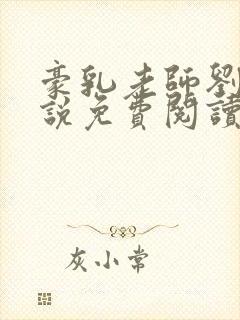 豪乳老師劉
說免費閱讀
灰小常